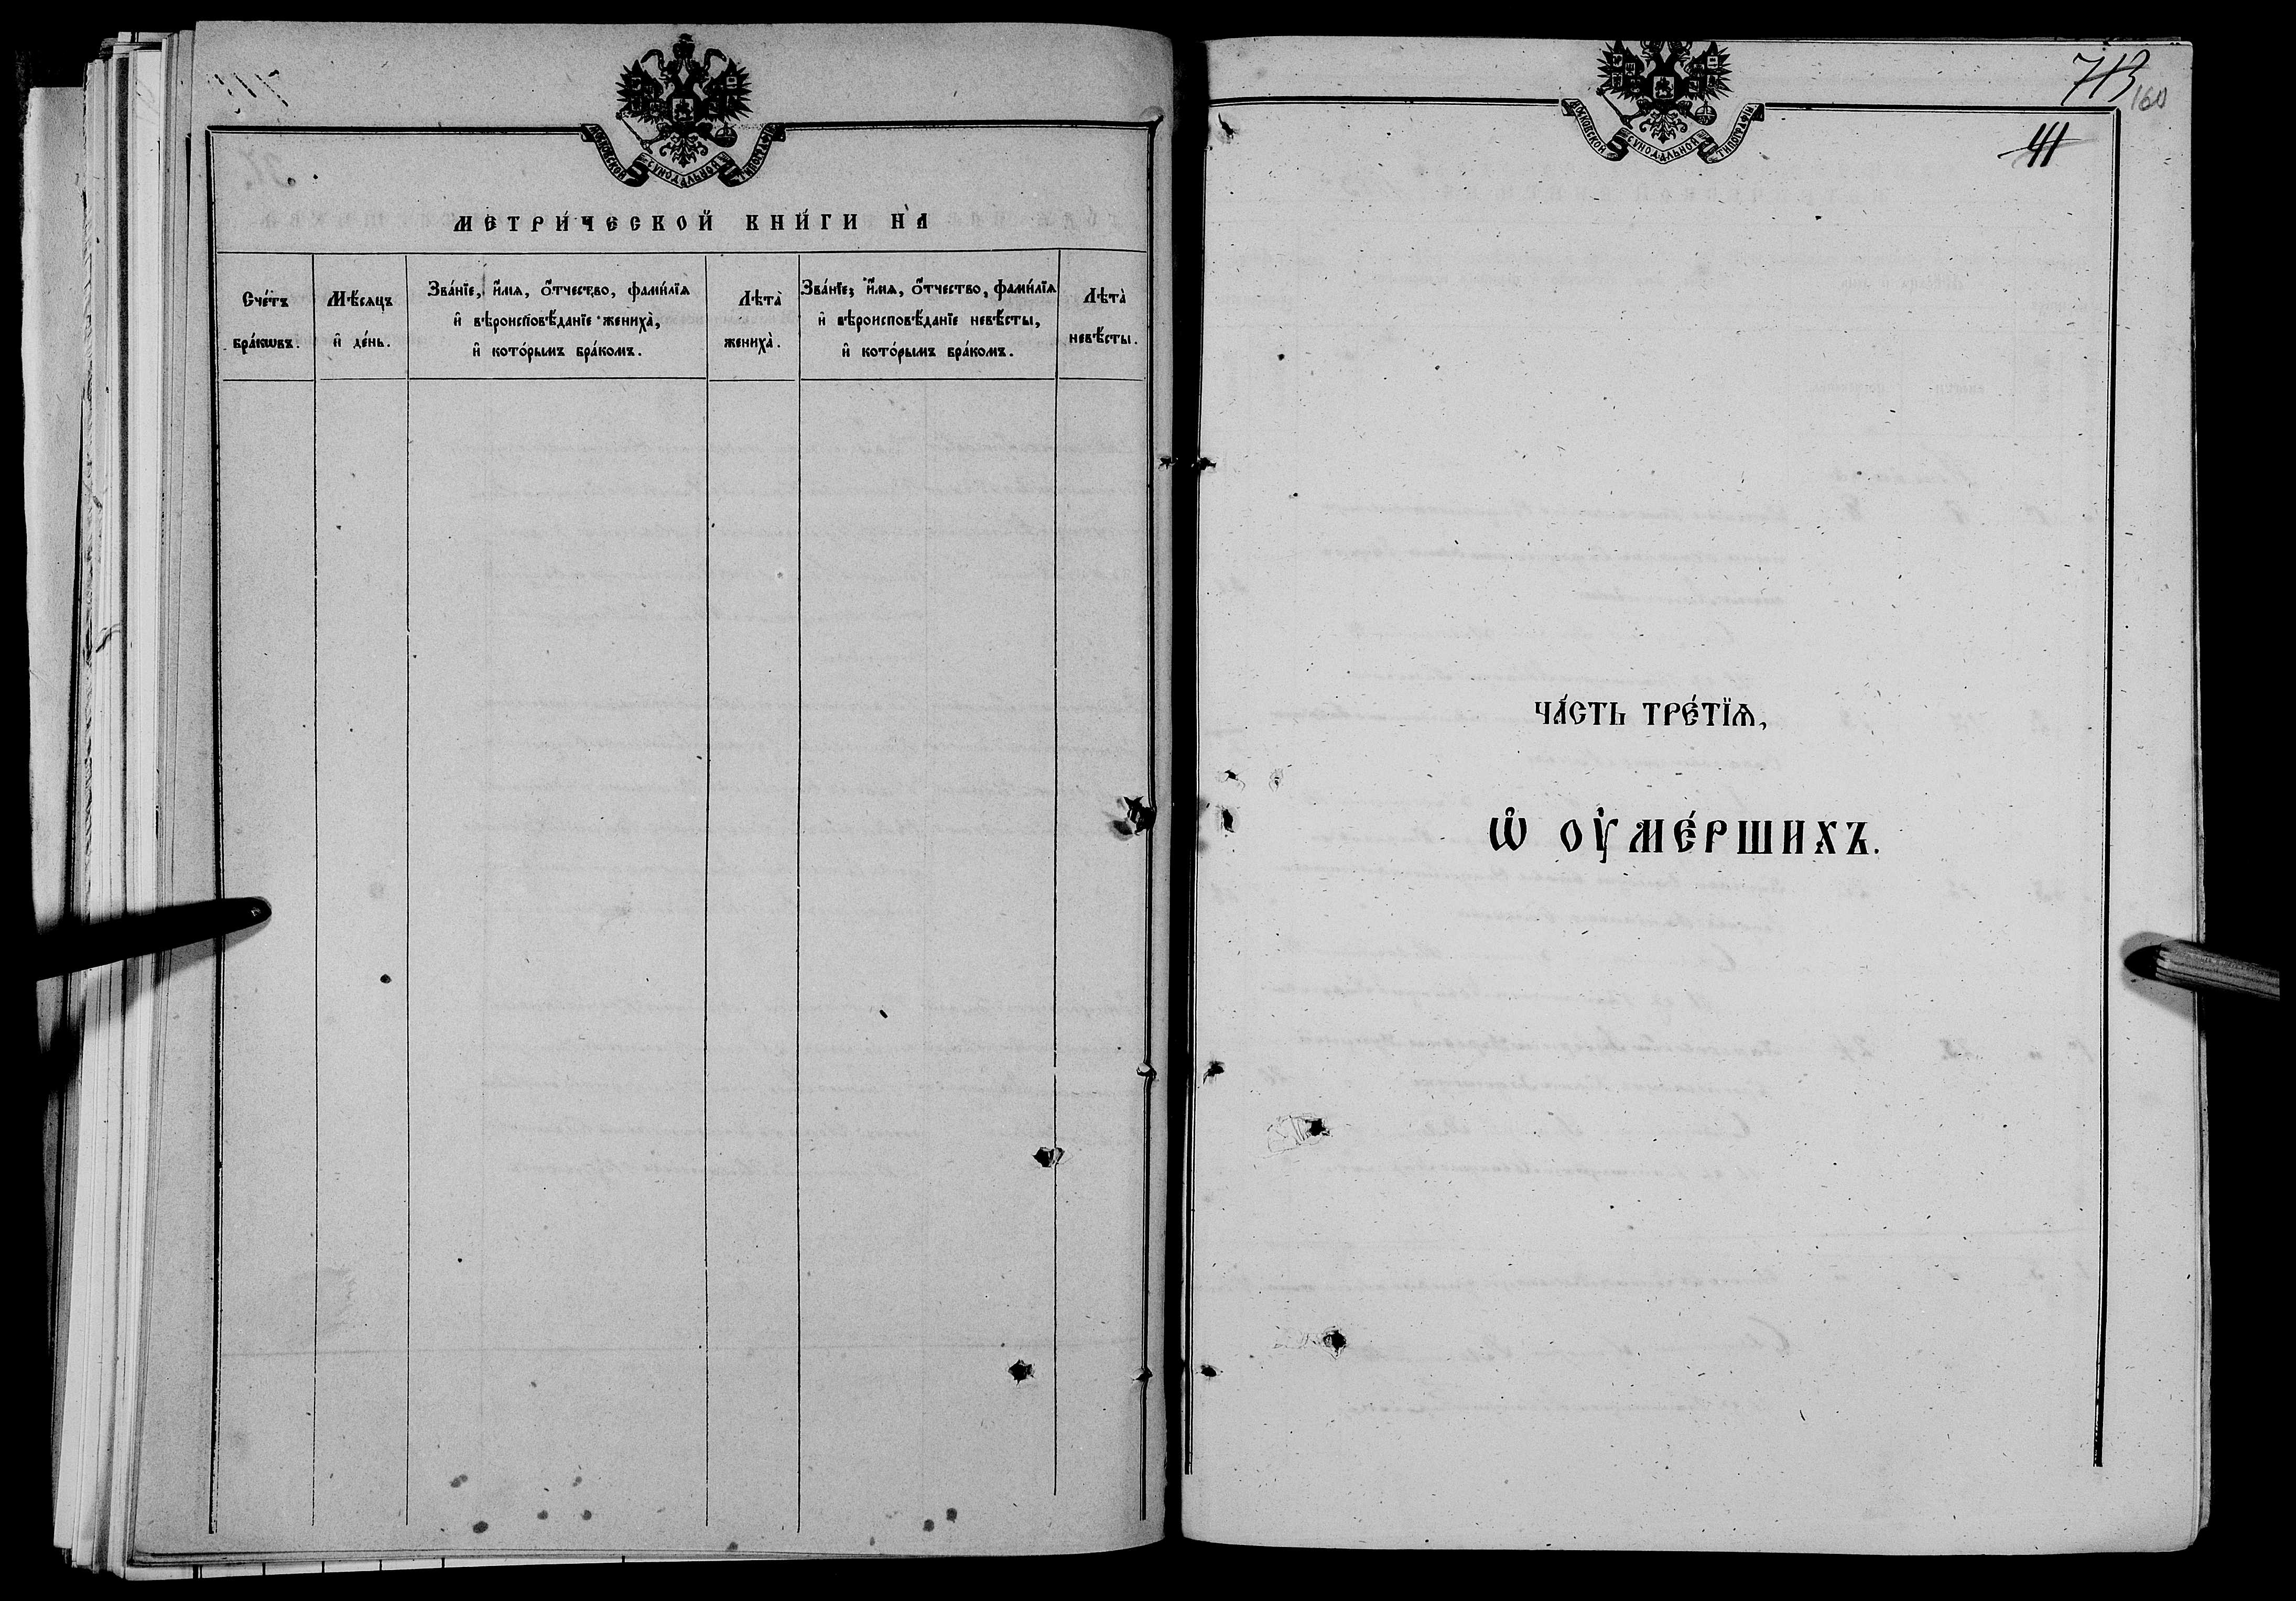 МОСКОВСКОЙ СѴНОДАЛЬНОЙ ТИПОГРАФІИ
МЕТРИ́ЧЕСКОЙ КНИ́ГИ НА̀
Сче́тъ бра́кѡвъ.
Мѣ́сяцъ и҆ де́нь.
Зва́нїе, и҆́мѧ, ѻ҆́тчество, фами́лїѧ
и҆ вѣроисповѣ́данїе жениха̀,
и҆ кото́рымъ бра́комъ.
Лѣта̀ жениха̀.
Зва́нїе, и҆́мѧ, ѻ҆́тчество, фами́лїѧ
и҆ вѣроисповѣ́данїе невѣ́сты,
и҆ кото́рымъ бра́комъ.
Лѣта̀ невѣ́сты.
МОСКОВСКОЙ СѴНОДАЛЬНОЙ ТИПОГРАФІИ
713
160
41
ЧА́СТЬ ТРЕ́ТЇѦ,
Ѡ҆ ОУ҆МЕ́РШИХЪ.